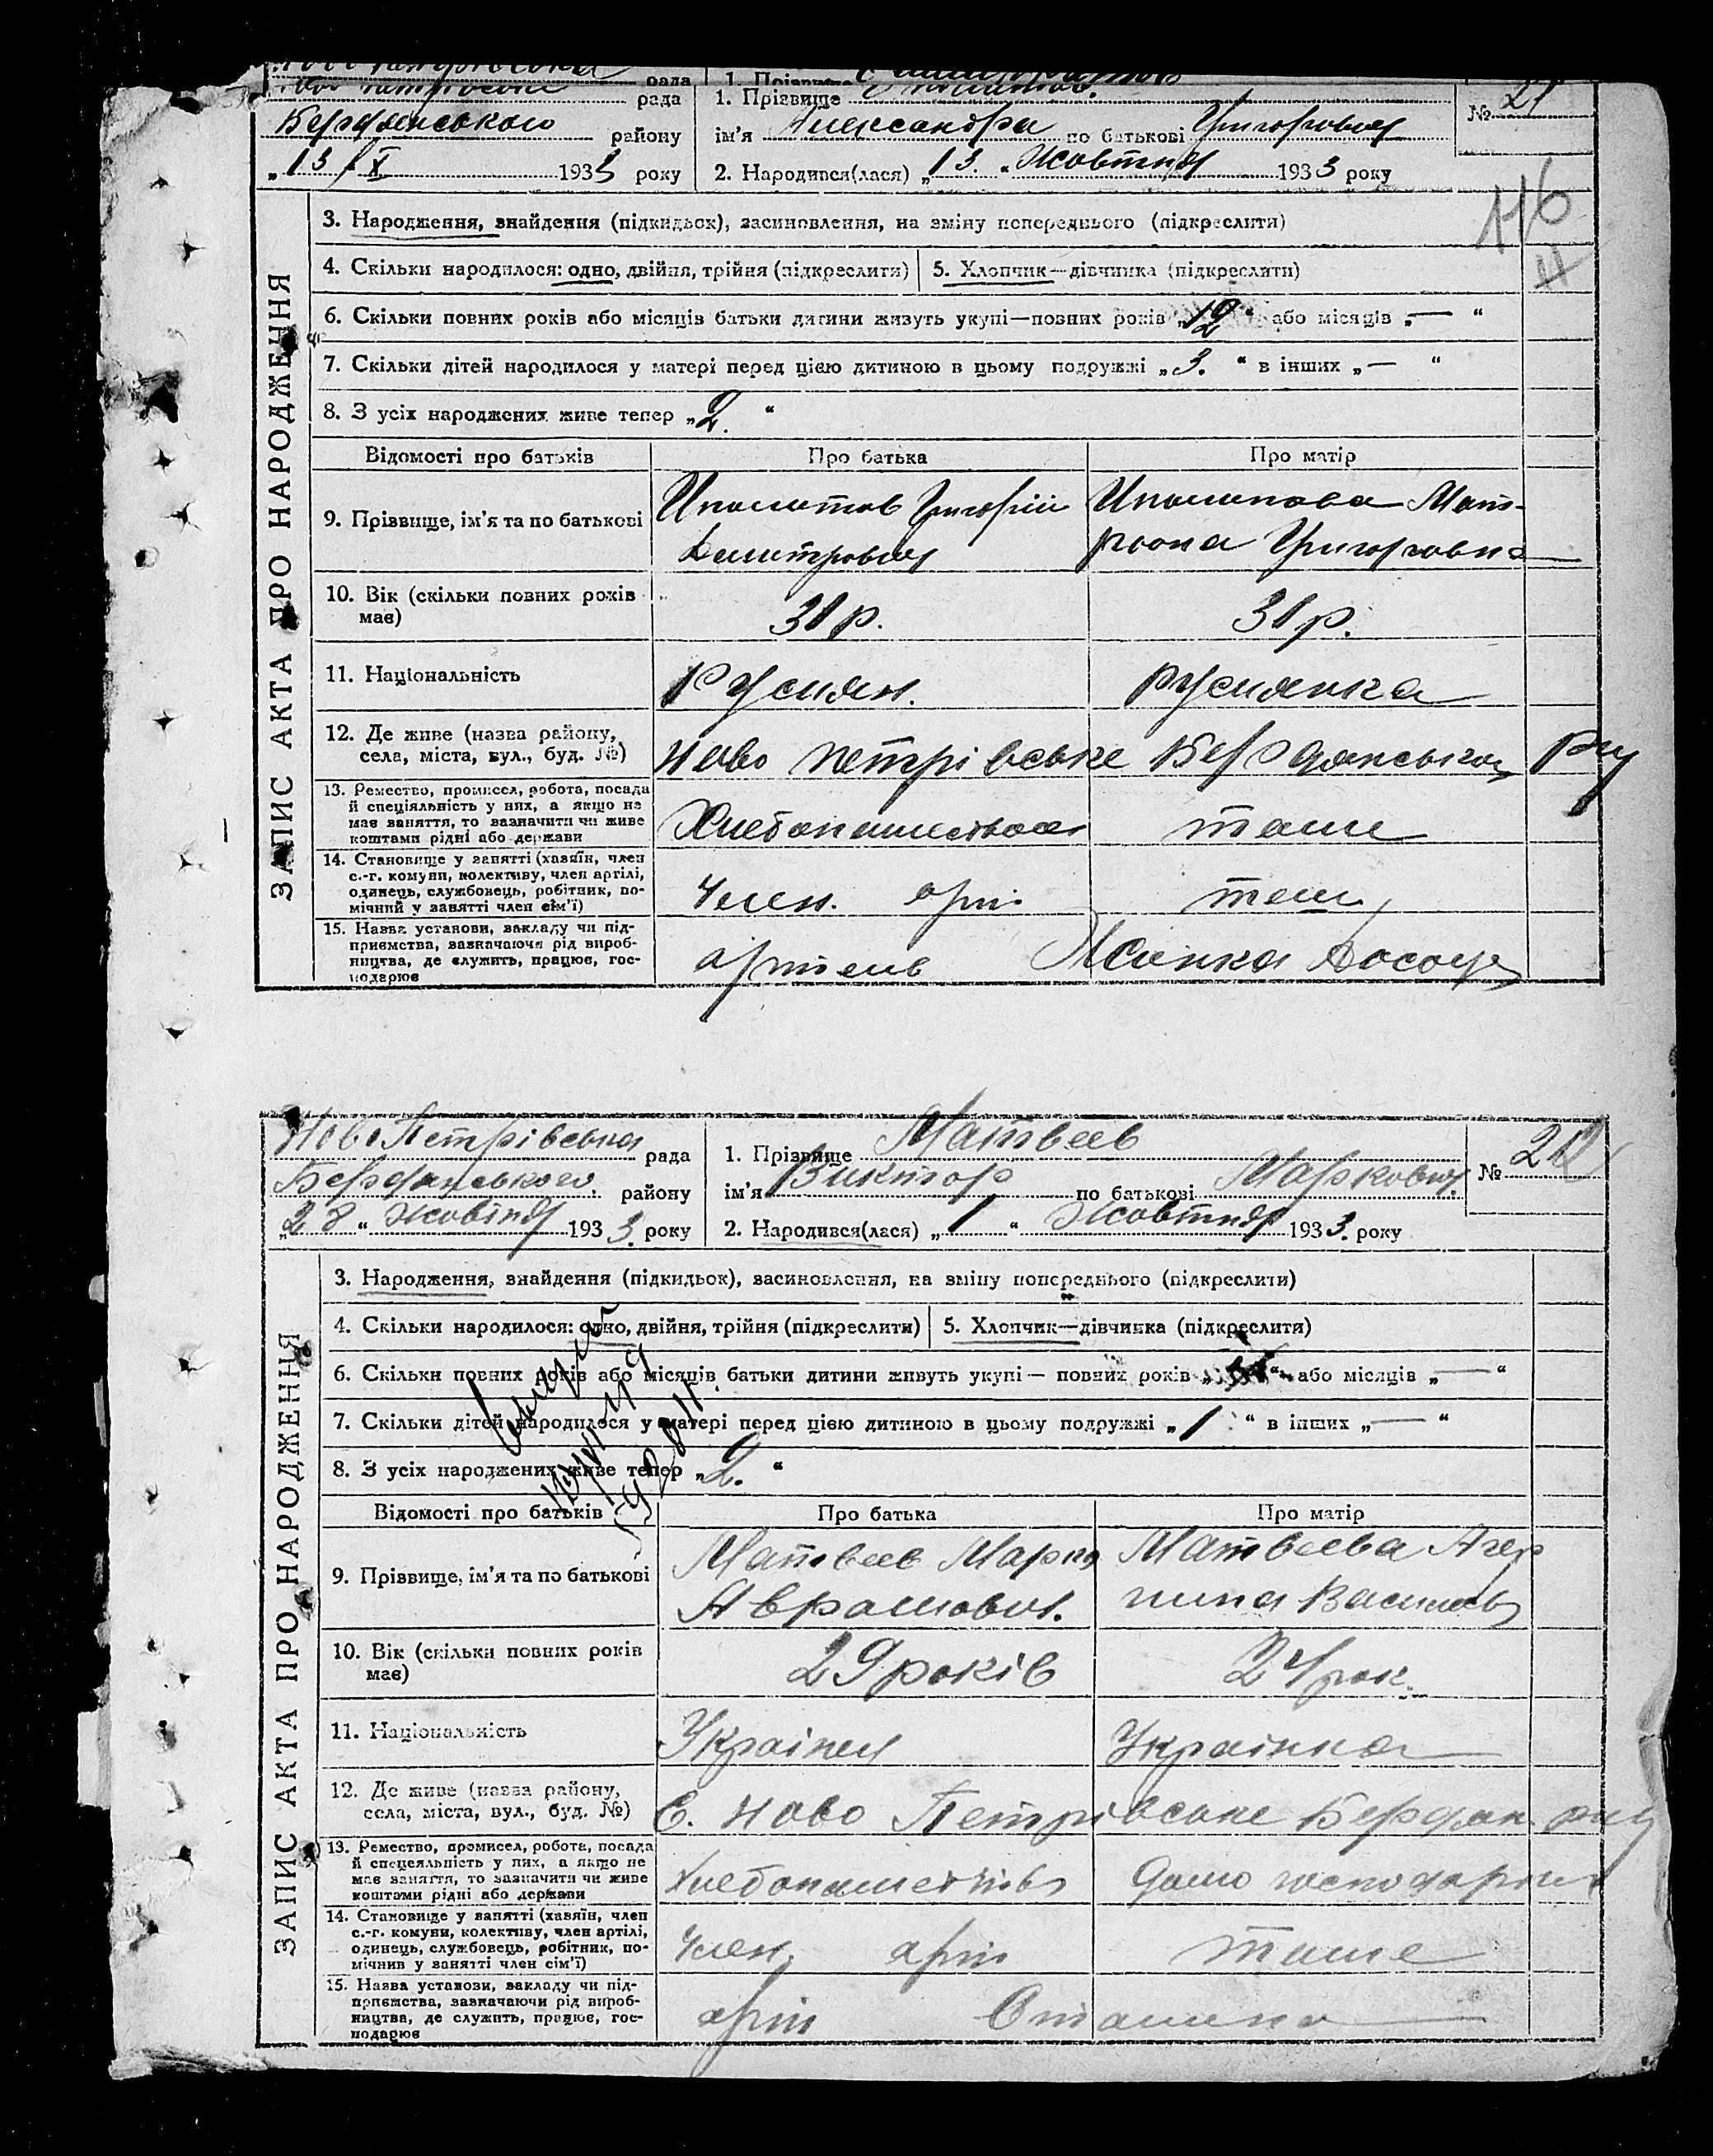 рада 1. Прізвище
Бердянського району ім'я Александра по батькові Григорович № 21
„13 / X 1933 року 2. Народився(лася) „13. “ Жовтня 1933 року
116
ЗАПИС АКТА ПРО НАРОДЖЕННЯ
3. Народження, знайдення (підкидьок), засиновлення, на зміну попереднього (підкреслити)
4. Скільки народилося: одно, двійня, трійня (підкреслити) 5. Хлопчик—дівчинка (підкреслити)
6. Скільки повних років або місяців батьки дитини живуть укупі—повних років „12“ або місяців „— “
7. Скільки дітей народилося у матері перед цією дитиною в цьому подружжі „3. “ в інших „— “
8. З усіх народжених живе тепер „2. “
Відомості про батьків Про батька Про матір
9. Прізвище, ім'я та по батькові Иполитов Григорій Иполитова Мат-
Дмитрович рьона Григоровна
10. Вік (скільки повних років 31 р. 31 р.
має)
11. Національність Русиян. русиянка
12. Де живе (назва району, Ново Петрівське Бердянського р-ну
села, міста, вул., буд. №)
13. Ремество, промисел, робота, посада
й спеціяльність у них, а якщо не
має заняття, то зазначити чи живе Хлебопашество тоже
коштами рідні або держави
14. Становище у занятті (хазяїн, член
с.-г. комуни, колективу, член артілі,
одинець, службовець, робітник, по- Член. арт. тоже
мічний у занятті член сім'ї)
15. Назва установи, закладу чи під-
приємства, зазначаючи рід вироб-
ництва, де служить, працює, гос- артель
подарює
Ново Петрівська рада 1. Прізвище Матвеев № 22
Бердянського. району ім'я Виктор по батькові Маркович.
„28 “ жовтня 1933. року 2. Народився(лася) „1 “ Жовтня 1933. року
ЗАПИС АКТА ПРО НАРОДЖЕННЯ
3. Народження, знайдення (підкидьок), засиновлення, на зміну попереднього (підкреслити)
4. Скільки народилося: одно, двійня, трійня (підкреслити) 5. Хлопчик—дівчинка (підкреслити)
6. Скільки повних років або місяців батьки дитини живуть укупі — повних років „ “ або місяців „— “
7. Скільки дітей народилося у матері перед цією дитиною в цьому подружжі „1 “ в інших „— “
8. З усіх народжених живе тепер „2. “
Відомості про батьків Про батька Про матір
9. Прізвище, ім'я та по батькові Матвеев Марко Матвеева
Аврамович. Василев
10. Вік (скільки повних років 29 років 24 рок.
має)
11. Національність Українец Українка
12. Де живе (назва району, С. Ново Петрівське Бердян. р-ну
села, міста, вул., буд. №)
13. Ремество, промисел, робота, посада
й спецеяльність у них, а якщо не
має заняття, то зазначити чи живе Хлебопашество домо господарка
коштами рідні або держави
14. Становище у занятті (хазяїн, член
с.-г. комуни, колективу, член артілі,
одинець, службовець, робітник, по- Член. арт тоже
мічнив у занятті член сім'ї)
15. Назва установи, закладу чи під-
приємства, зазначаючи рід вироб-
ництва, де служить, працює, гос- арт Сталина
подарює